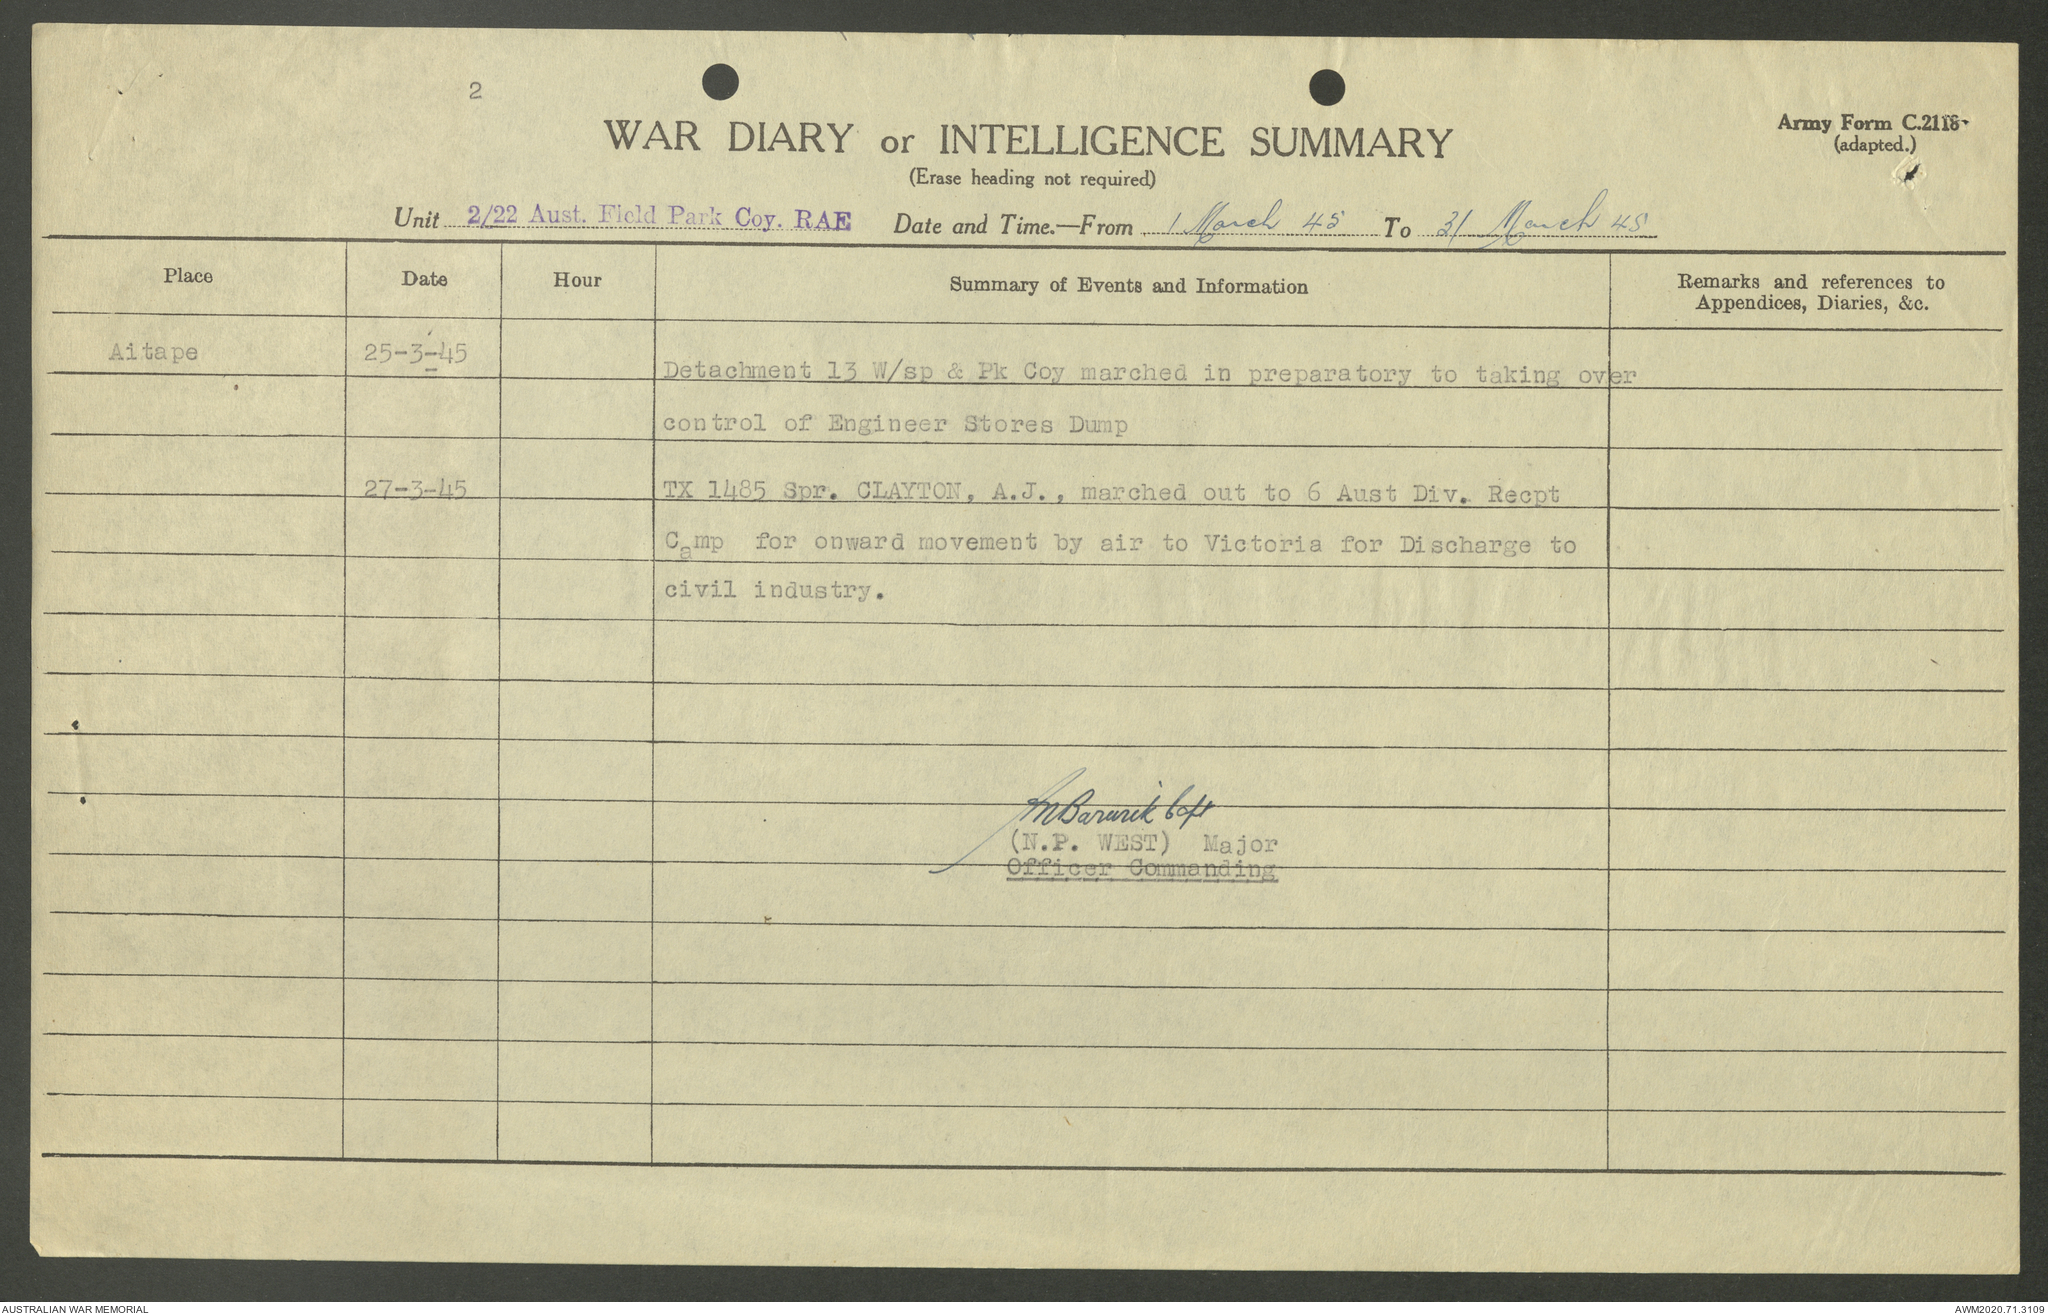 2
WAR DIARY or INTELLIGENCE SUMMARY
(Erase heading not required)
Army Form C.2118
(adapted.)
Unit 2/22 Aust. Field Park Coy. RAE Date and Time.—From 1 March 45 To 31 March 45
Place Date Hour Summary of Events and Information Remarks and references to Appendices, Diaries, &c.
Aitape 25-3-45
Detachment 13 W/sp & Pk Coy marched in preparatory to taking over
control of Engineer Stores Dump
27-3-45 TX 1485 Spr. CLAYTON, A.J., marched out to 6 Aust Div. Recpt
Camp for onward movement by air to Victoria for Discharge to
civil industry.
(N.P. WEST) Major
Officer Commanding
AUSTRALIAN WAR MEMORIAL AWM2020.71.3109